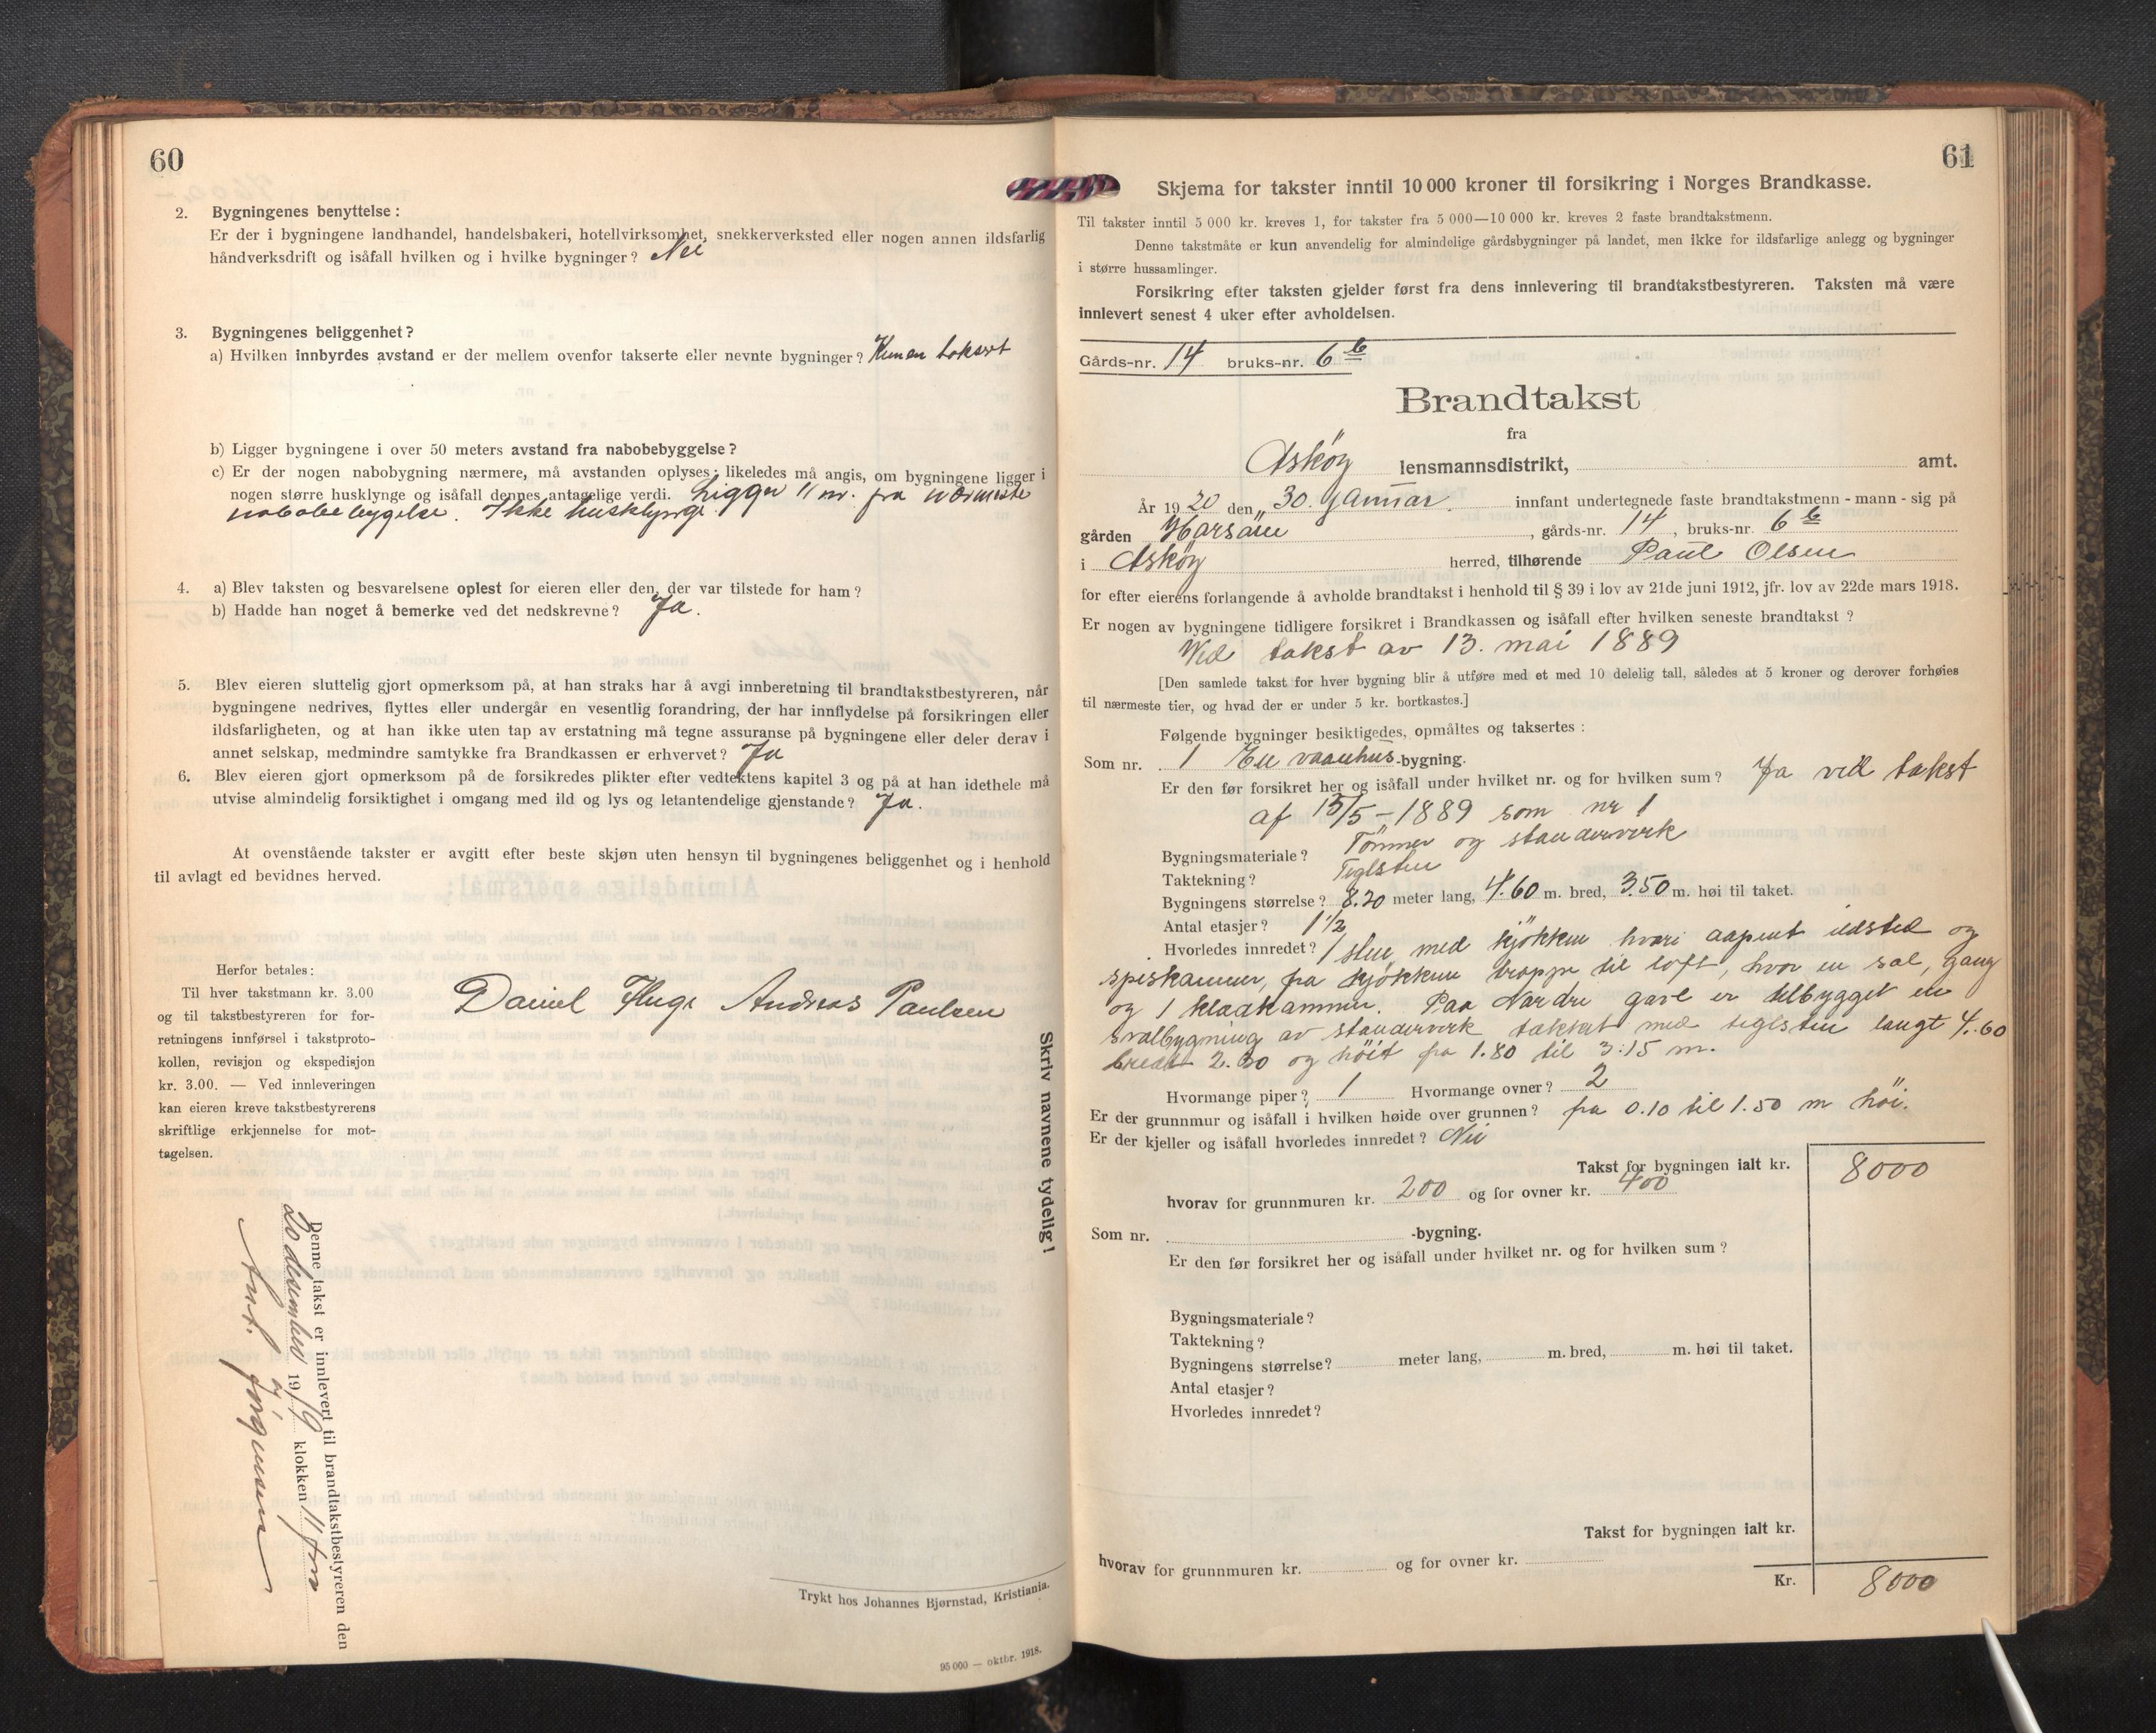 60
2. Bygningenes benyttelse :
Er der i bygningene landhandel, handelsbakeri, hotellvirksomhet, snekkerverksted eller nogen annen ildsfarlig
håndverksdrift og isåfall hvilken og i hvilke bygninger ? Nei
3. Bygningenes beliggenhet ?
a) Hvilken innbyrdes avstand er der mellem ovenfor takserte eller nevnte bygninger ? Kun en taksert
b) Ligger bygningene i over 50 meters avstand fra nabobebyggelse ?
c) Er der nogen nabobygning nærmere, må avstanden oplyses ; likeledes må angis, om bygningene ligger i
nogen større husklynge og isåfall dennes antagelige verdi. Ligger 11 m. fra nærmeste
nabobebyggelse. Ikke husklynge
4. a) Blev taksten og besvarelsene oplest for eieren eller den, der var tilstede for ham ?
b) Hadde han noget å bemerke ved det nedskrevne ? Ja.
5. Blev eieren sluttelig gjort opmerksom på, at han straks har å avgi innberetning til brandtakstbestyreren, når
bygningene nedrives, flyttes eller undergår en vesentlig forandring, der har innflydelse på forsikringen eller
ildsfarligheten, og at han ikke uten tap av erstatning må tegne assuranse på bygningene eller deler derav i
annet selskap, medmindre samtykke fra Brandkassen er erhvervet ? Ja
6. Blev eieren gjort opmerksom på de forsikredes plikter efter vedtektens kapitel 3 og på at han idethele må
utvise almindelig forsiktighet i omgang med ild og lys og letantendelige gjenstande ? Ja.
At ovenstående takster er avgitt efter beste skjøn uten hensyn til bygningenes beliggenhet og i henhold
til avlagt ed bevidnes herved.
Herfor betales :
Til hver takstmann kr. 3.00
og til takstbestyreren for for-
retningens innførsel i takstproto-
kollen, revisjon og ekspedisjon
kr. 3.00. — Ved innleveringen
kan eieren kreve takstbestyrerens
skriftlige erkjennelse for mot-
tagelsen.
Daniel Fluge Andreas Paulsen
Skriv navnene tydelig !
Denne takst er innlevert til brandtakstbestyreren den
20 desember 1919 klokken 11 fm
Jørgensen
Trykt hos Johannes Bjørnstad, Kristiania.
95 000 — oktbr. 1918.
61
Skjema for takster inntil 10 000 kroner til forsikring i Norges Brandkasse.
Til takster inntil 5 000 kr. kreves 1, for takster fra 5 000—10 000 kr. kreves 2 faste brandtakstmenn.
Denne takstmåte er kun anvendelig for almindelige gårdsbygninger på landet, men ikke for ildsfarlige anlegg og bygninger
i større hussamlinger.
Forsikring efter taksten gjelder først fra dens innlevering til brandtakstbestyreren. Taksten må være
innlevert senest 4 uker efter avholdelsen.
Gårds-nr. 14 bruks-nr. 6 b
Brandtakst
fra
Askøy lensmannsdistrikt, amt.
År 1920 den 30. januar. innfant undertegnede faste brandtakstmenn - mann - sig på
gården , gårds-nr. 14 , bruks-nr. 6 b
i Askøy herred, tilhørende Paul Olsen
for efter eierens forlangende å avholde brandtakst i henhold til § 39 i lov av 21de juni 1912, jfr. lov av 22de mars 1918.
Er nogen av bygningene tidligere forsikret i Brandkassen og isåfall efter hvilken seneste brandtakst ?
Ved takst av 13. mai 1889
[Den samlede takst for hver bygning blir å utføre med et med 10 delelig tall, således at 5 kroner og derover forhøies
til nærmeste tier, og hvad der er under 5 kr. bortkastes.]
Følgende bygninger besiktigedes, opmåltes og taksertes :
Som nr. 1 En vaanhus-bygning.
Er den før forsikret her og isåfall under hvilket nr. og for hvilken sum ? Ja ved takst
af 13/5 - 1889 som nr 1
Bygningsmateriale ? Tømmer og standerverk
Taktekning ? Teglsten
Bygningens størrelse ? 8.20 meter lang, 4.60 m. bred, 3.50 m. høi til taket.
Antal etasjer ? 1 1/2
Hvorledes innredet ? 1 stue med kjøkken hvori aapent ildsted og
spiskammer, fra kjøkken trappe til loft, hvor en sal, gang
og 1 kladkammer. Paa Nordre gavl er tilbygget en
svalbygning av standerverk taktet med teglsten langt 4.60
bredt 2.00 og høit fra 1.80 til 3.15 m.
Hvormange piper ? 1 Hvormange ovner ? 2
Er der grunnmur og isåfall i hvilken høide over grunnen ? fra 0.10 til 1.50 m høi.
Er der kjeller og isåfall hvorledes innredet ? Nei
Takst for bygningen ialt kr. 8000
hvorav for grunnmuren kr. 200 og for ovner kr. 400
Som nr. -bygning.
Er den før forsikret her og isåfall under hvilket nr. og for hvilken sum ?
Bygningsmateriale ?
Taktekning ?
Bygningens størrelse ? meter lang, m. bred, m. høi til taket.
Antal etasjer ?
Hvorledes innredet ?
Takst for bygningen ialt kr.
hvorav for grunnmuren kr. og for ovner kr.
Kr. 8000